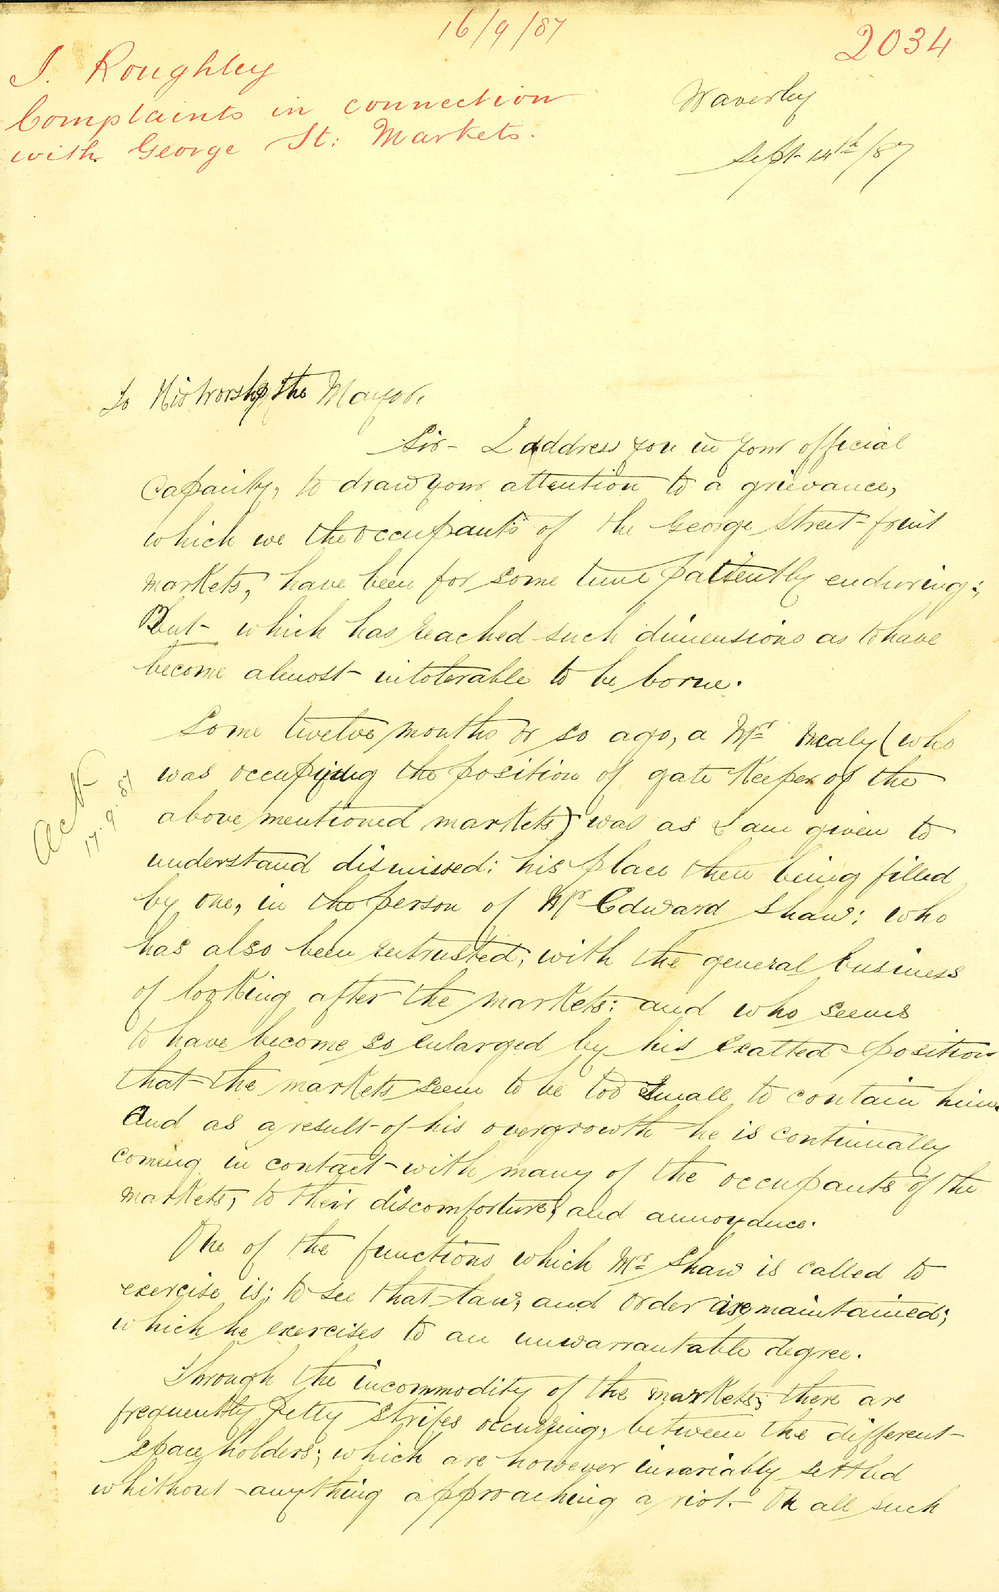 16/9/87
2034
J. Roughley
Complaints in connection
with George St: Markets.
Waverley
Sept 14th/87
To His Worship the Mayor.
Sir - I address you in your official
Capacity, to draw your attention to a grievance,
which we the occupants of the George Street fruit
markets, have been for some time patiently enduring;
But which has reached such dimensions as to have
become almost intolerable to be borne.
Some twelve months or so ago, a Mr Mealy (who
was occupying the position of gate Keeper of the
above mentioned markets) was as I am given to
understand dismissed: his place then being filled
by one, in the person of Mr Edward Shaw: who
has also been entrusted, with the general business
of looking after the markets: and who seems
to have become so enlarged by his exalted position
that the markets seem to be too small to contain him.
And as a result of his overgrowth he is continually
coming in contact with many of the occupants of the
markets, to their discomforture, and annoyance.
One of the functions which Mr Shaw is called to
exercise is; to see that law, and order is maintained;
which he exercises to an unwarrantable degree.
Through the incommodity of the markets, there are
frequently petty strifes occurring, between the different
space holders; which are however invariably settled
whithout anything approaching a riot. On all such
Ack
17.9.87